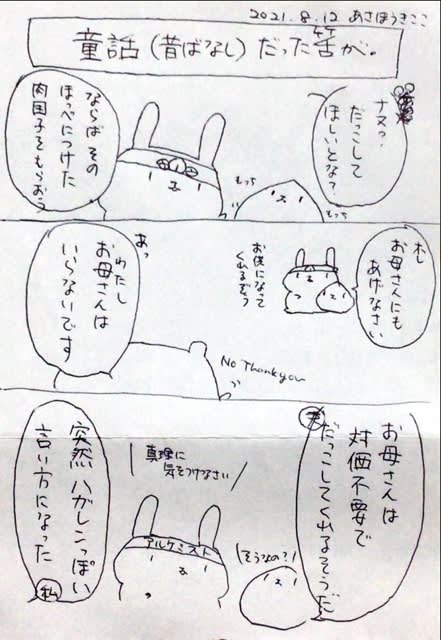 2021.8.12 あさほうきここ
童話(昔ばなし)だった筈が。
ナヌ?
だっこして
ほしいとな?
もっち
もっち
ならば その
ほっぺにつけた
肉団子をもらおう
ホレ
お母さんにも
あげなさい
お供になって
くれるぞう
あっ
わたし
お母さんは
いらないです
No Thank you
お母さんは
対価不要で
だっこしてくれるそうだ
そうなの?
真理に
気をつけなさい
アルケミスト
突然 ハガレンっぽい
言い方になった
私